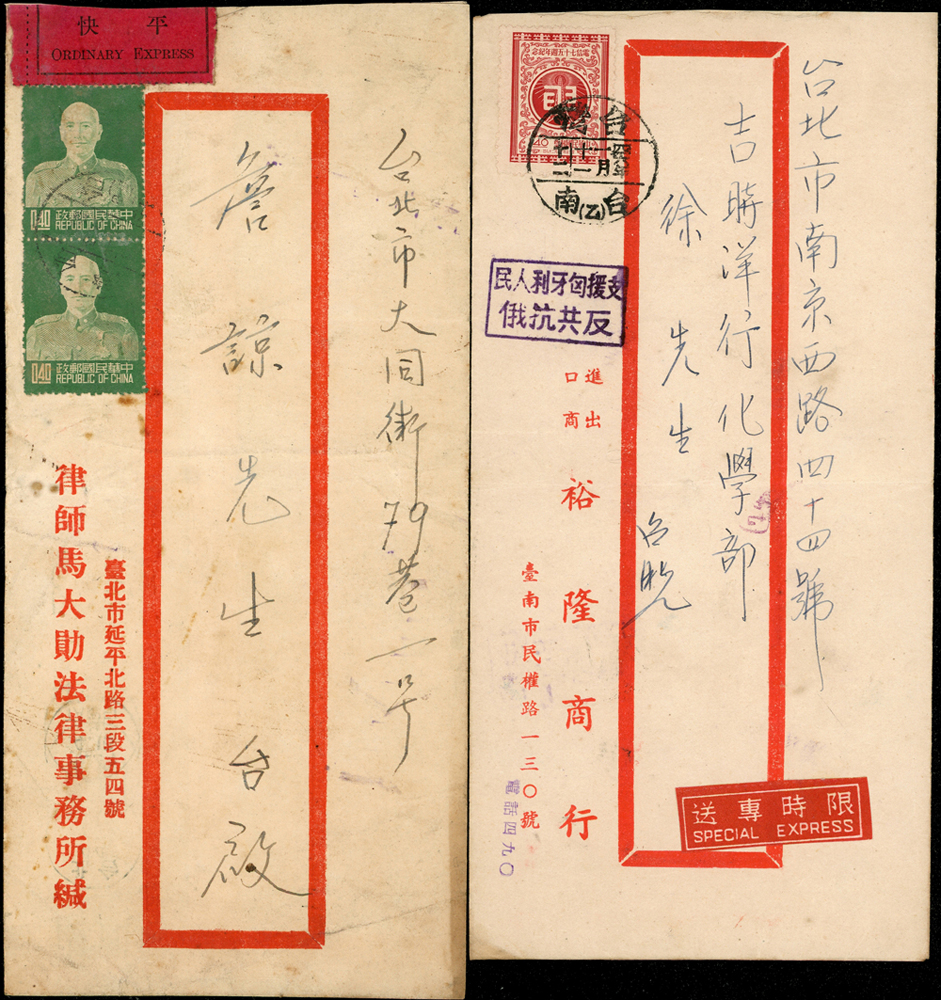 平快
ORDINARY EXPRESS
中華民國郵政
0.40 REPUBLIC OF CHINA
中華民國郵政
0.40 REPUBLIC OF CHINA
台北市大同街79巷一号
詹諒先生台啟
臺北市延平北路三段五四號
律師馬大勛法律事務所緘
電信七十五週年紀念
台南(乙)
支援匈牙利人民
反共抗俄
台北市南京西路四十四號
吉時洋行化學部
徐先生 台照
進出口商
裕隆商行
臺南市民權路一三〇號
電話四九〇
限時專送
SPECIAL EXPRESS